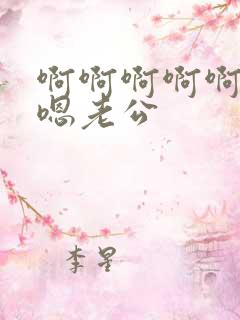 啊啊啊啊啊
嗯老公
李星